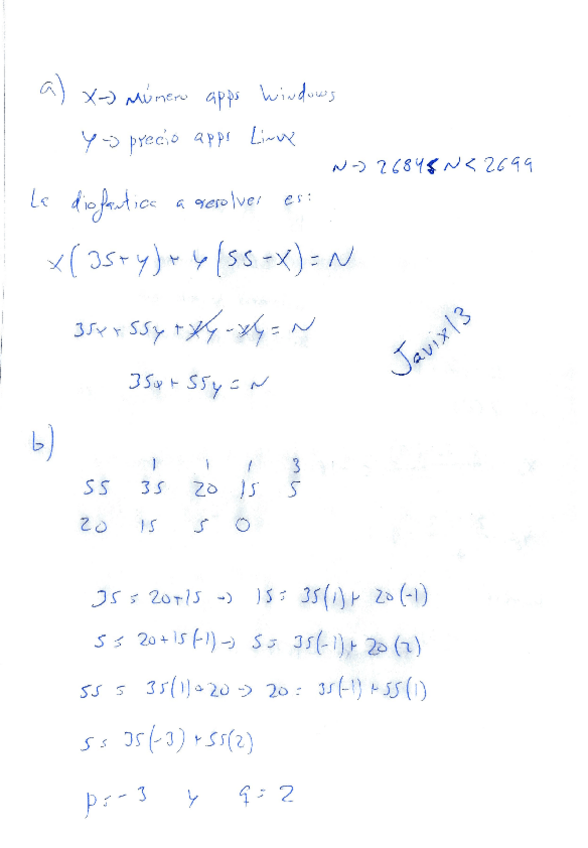 a) x → Número apps Windows
y → precio apps Linux
N → 2684 ≤ N < 2699
La diofántica a resolver es:
x(35+y) + y(55-x) = N
35x + 55y + xy - xy = N
Javix13
35x + 55y = N
b)
1 1 1 3
55 35 20 15 5
20 15 5 0
35 = 20+15 → 15 = 35(1) + 20(-1)
5 = 20+15(-1) → 5 = 35(-1) + 20(2)
55 = 35(1)+20 → 20 = 35(-1) + 55(1)
5 = 35(-3) + 55(2)
p = -3 y q = 2